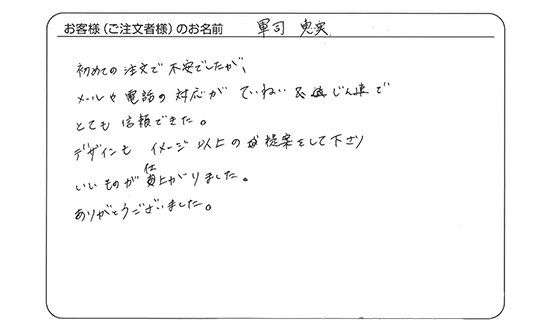 お客様（ご注文者様）のお名前 軍司 恵実
初めての注文で不安でしたが、
メールや電話の対応がていねい＆じん速で
とても信頼できた。
デザインもイメージ以上の提案をして下さり
いいものが仕上がりました。
ありがとうございました。